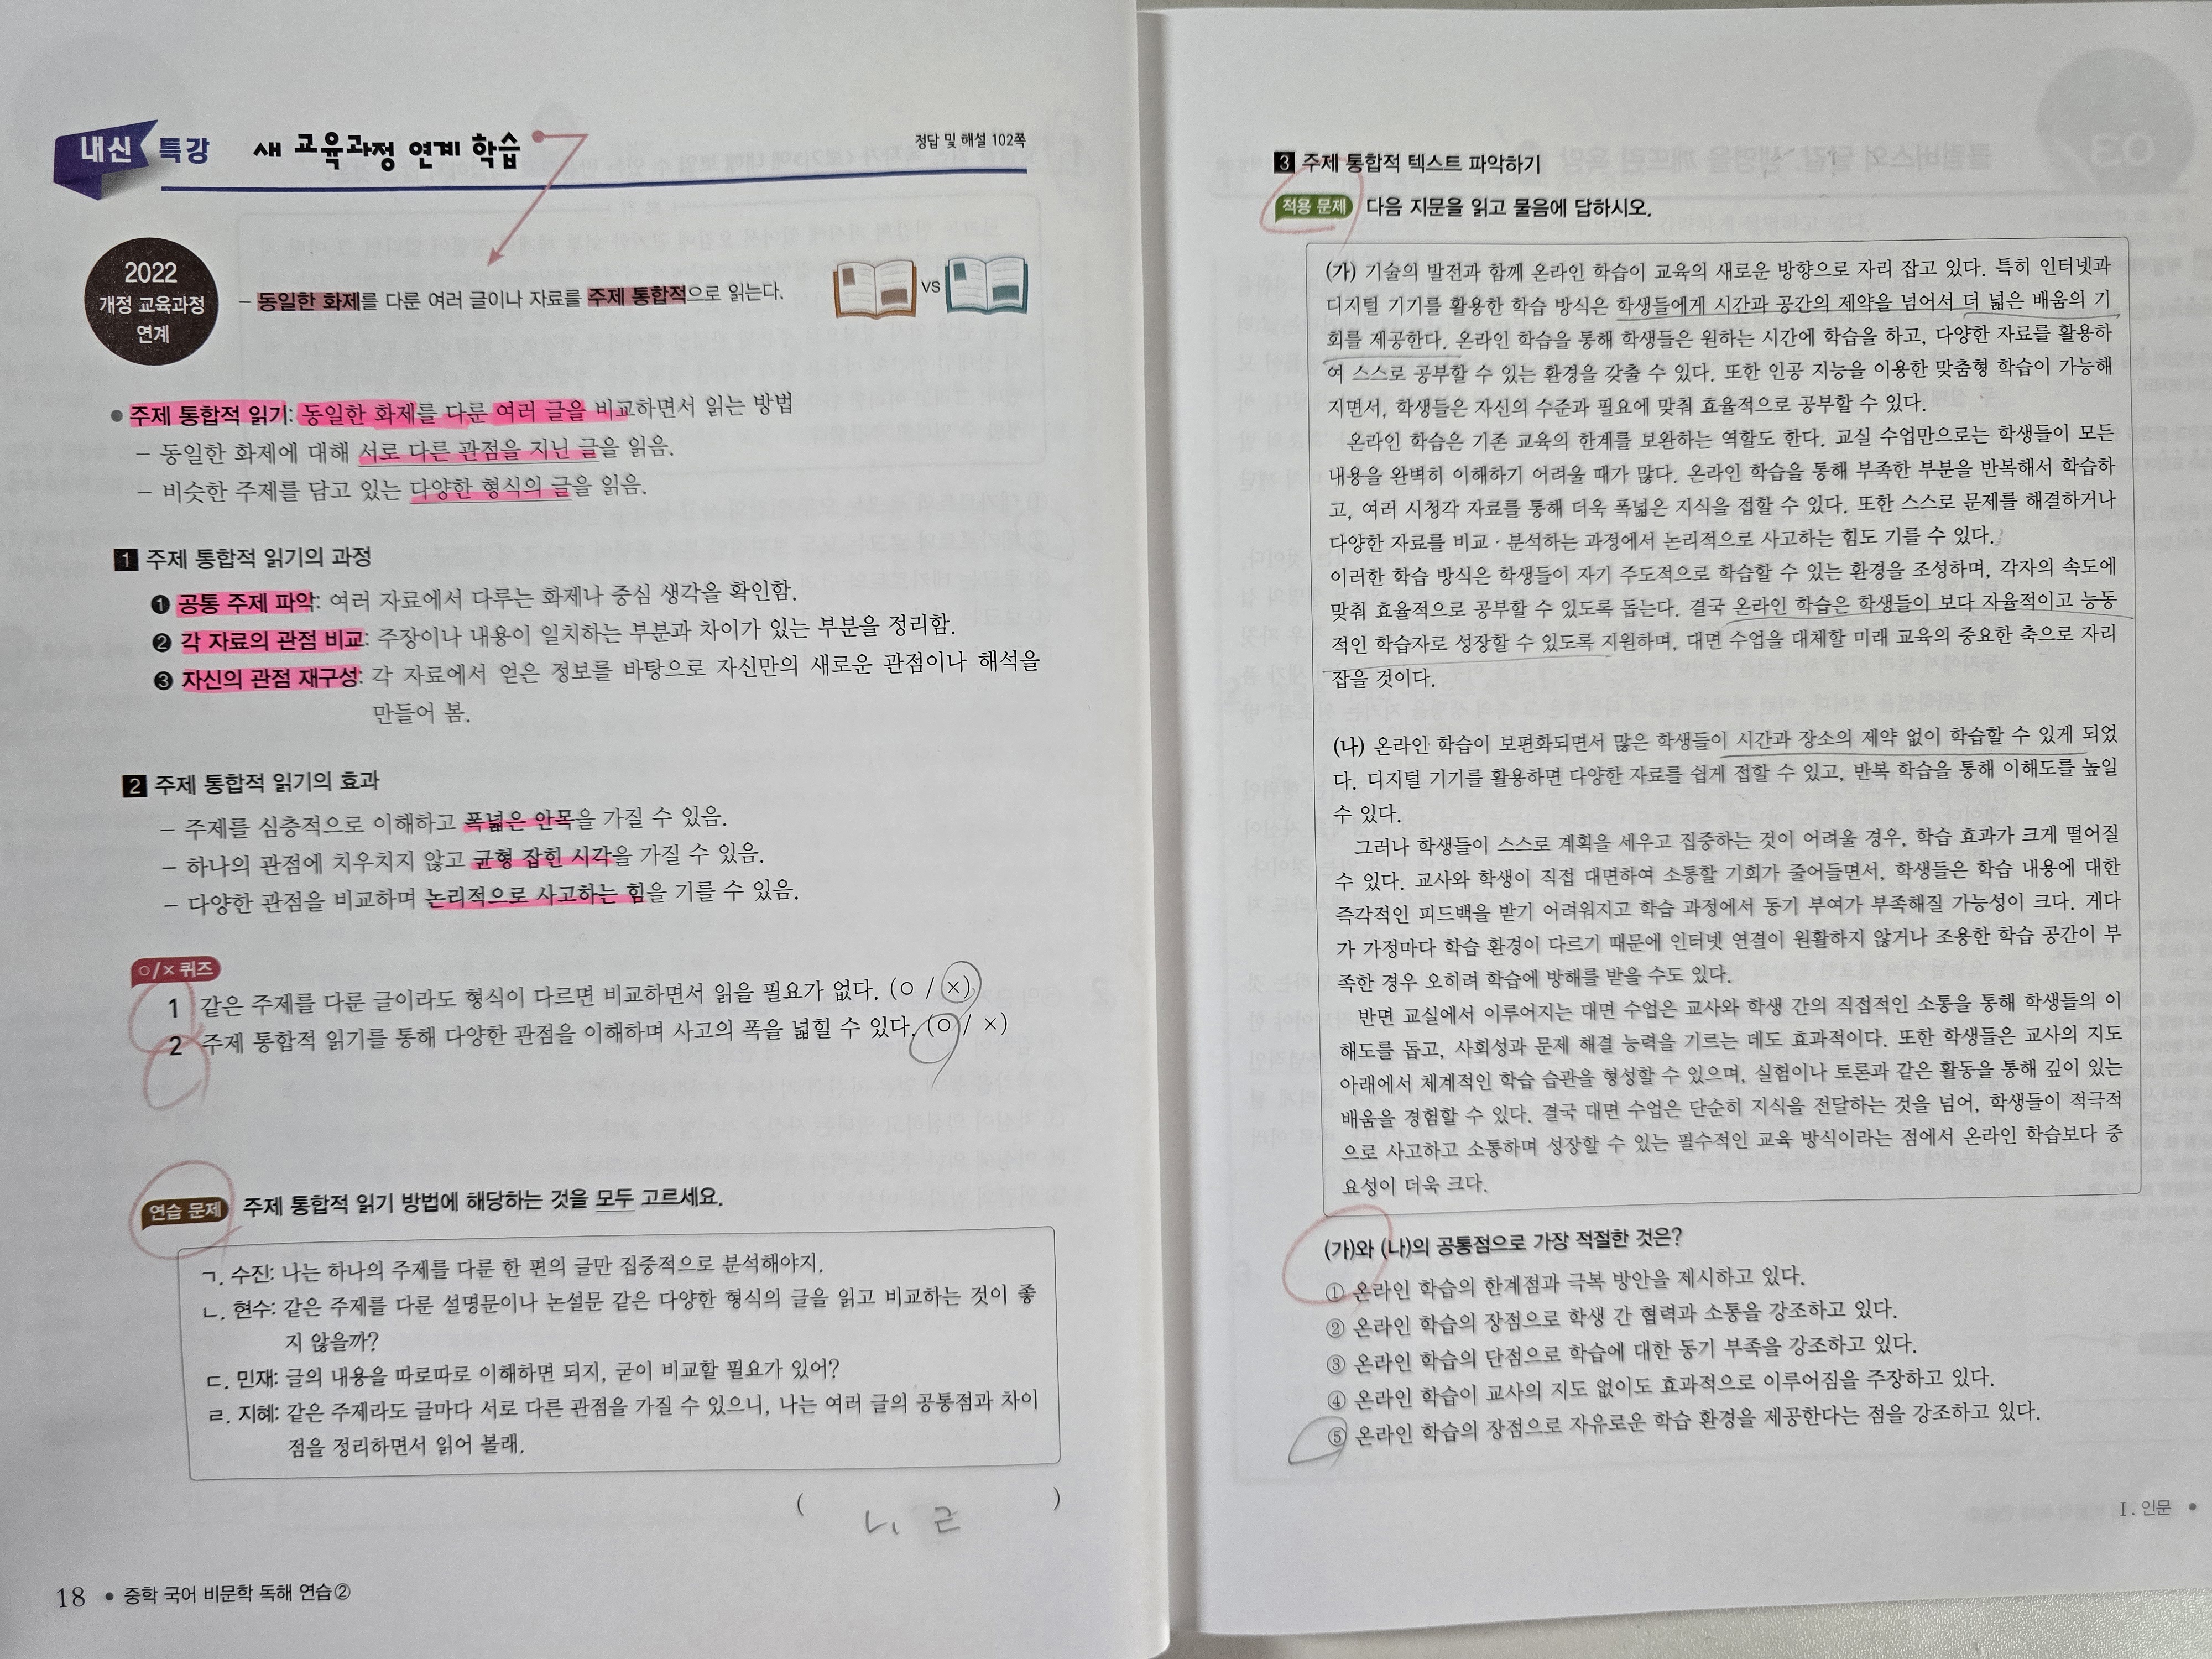 내신 특강 새 교육과정 연계 학습
정답 및 해설 102쪽
2022
개정 교육과정
연계
– 동일한 화제를 다룬 여러 글이나 자료를 주제 통합적으로 읽는다.
VS
● 주제 통합적 읽기: 동일한 화제를 다룬 여러 글을 비교하면서 읽는 방법
– 동일한 화제에 대해 서로 다른 관점을 지닌 글을 읽음.
– 비슷한 주제를 담고 있는 다양한 형식의 글을 읽음.
1 주제 통합적 읽기의 과정
❶ 공통 주제 파악: 여러 자료에서 다루는 화제나 중심 생각을 확인함.
❷ 각 자료의 관점 비교: 주장이나 내용이 일치하는 부분과 차이가 있는 부분을 정리함.
❸ 자신의 관점 재구성: 각 자료에서 얻은 정보를 바탕으로 자신만의 새로운 관점이나 해석을
만들어 봄.
2 주제 통합적 읽기의 효과
– 주제를 심층적으로 이해하고 폭넓은 안목을 가질 수 있음.
– 하나의 관점에 치우치지 않고 균형 잡힌 시각을 가질 수 있음.
– 다양한 관점을 비교하며 논리적으로 사고하는 힘을 기를 수 있음.
○/× 퀴즈
1 같은 주제를 다룬 글이라도 형식이 다르면 비교하면서 읽을 필요가 없다. (○ / ×)
2 주제 통합적 읽기를 통해 다양한 관점을 이해하며 사고의 폭을 넓힐 수 있다. (○ / ×)
연습 문제 주제 통합적 읽기 방법에 해당하는 것을 모두 고르세요.
ㄱ. 수진: 나는 하나의 주제를 다룬 한 편의 글만 집중적으로 분석해야지.
ㄴ. 현수: 같은 주제를 다룬 설명문이나 논설문 같은 다양한 형식의 글을 읽고 비교하는 것이 좋
지 않을까?
ㄷ. 민재: 글의 내용을 따로따로 이해하면 되지, 굳이 비교할 필요가 있어?
ㄹ. 지혜: 같은 주제라도 글마다 서로 다른 관점을 가질 수 있으니, 나는 여러 글의 공통점과 차이
점을 정리하면서 읽어 볼래.
( ㄴ, ㄹ )
18 ● 중학 국어 비문학 독해 연습②
3 주제 통합적 텍스트 파악하기
적용 문제 다음 지문을 읽고 물음에 답하시오.
(가) 기술의 발전과 함께 온라인 학습이 교육의 새로운 방향으로 자리 잡고 있다. 특히 인터넷과
디지털 기기를 활용한 학습 방식은 학생들에게 시간과 공간의 제약을 넘어서 더 넓은 배움의 기
회를 제공한다. 온라인 학습을 통해 학생들은 원하는 시간에 학습을 하고, 다양한 자료를 활용하
여 스스로 공부할 수 있는 환경을 갖출 수 있다. 또한 인공 지능을 이용한 맞춤형 학습이 가능해
지면서, 학생들은 자신의 수준과 필요에 맞춰 효율적으로 공부할 수 있다.
온라인 학습은 기존 교육의 한계를 보완하는 역할도 한다. 교실 수업만으로는 학생들이 모든
내용을 완벽히 이해하기 어려울 때가 많다. 온라인 학습을 통해 부족한 부분을 반복해서 학습하
고, 여러 시청각 자료를 통해 더욱 폭넓은 지식을 접할 수 있다. 또한 스스로 문제를 해결하거나
다양한 자료를 비교·분석하는 과정에서 논리적으로 사고하는 힘도 기를 수 있다.
이러한 학습 방식은 학생들이 자기 주도적으로 학습할 수 있는 환경을 조성하며, 각자의 속도에
맞춰 효율적으로 공부할 수 있도록 돕는다. 결국 온라인 학습은 학생들이 보다 자율적이고 능동
적인 학습자로 성장할 수 있도록 지원하며, 대면 수업을 대체할 미래 교육의 중요한 축으로 자리
잡을 것이다.
(나) 온라인 학습이 보편화되면서 많은 학생들이 시간과 장소의 제약 없이 학습할 수 있게 되었
다. 디지털 기기를 활용하면 다양한 자료를 쉽게 접할 수 있고, 반복 학습을 통해 이해도를 높일
수 있다.
그러나 학생들이 스스로 계획을 세우고 집중하는 것이 어려울 경우, 학습 효과가 크게 떨어질
수 있다. 교사와 학생이 직접 대면하여 소통할 기회가 줄어들면서, 학생들은 학습 내용에 대한
즉각적인 피드백을 받기 어려워지고 학습 과정에서 동기 부여가 부족해질 가능성이 크다. 게다
가 가정마다 학습 환경이 다르기 때문에 인터넷 연결이 원활하지 않거나 조용한 학습 공간이 부
족한 경우 오히려 학습에 방해를 받을 수도 있다.
반면 교실에서 이루어지는 대면 수업은 교사와 학생 간의 직접적인 소통을 통해 학생들의 이
해도를 돕고, 사회성과 문제 해결 능력을 기르는 데도 효과적이다. 또한 학생들은 교사의 지도
아래에서 체계적인 학습 습관을 형성할 수 있으며, 실험이나 토론과 같은 활동을 통해 깊이 있는
배움을 경험할 수 있다. 결국 대면 수업은 단순히 지식을 전달하는 것을 넘어, 학생들이 적극적
으로 사고하고 소통하며 성장할 수 있는 필수적인 교육 방식이라는 점에서 온라인 학습보다 중
요성이 더욱 크다.
(가)와 (나)의 공통점으로 가장 적절한 것은?
① 온라인 학습의 한계점과 극복 방안을 제시하고 있다.
② 온라인 학습의 장점으로 학생 간 협력과 소통을 강조하고 있다.
③ 온라인 학습의 단점으로 학습에 대한 동기 부족을 강조하고 있다.
④ 온라인 학습이 교사의 지도 없이도 효과적으로 이루어짐을 주장하고 있다.
⑤ 온라인 학습의 장점으로 자유로운 학습 환경을 제공한다는 점을 강조하고 있다.
Ⅰ. 인문 ●